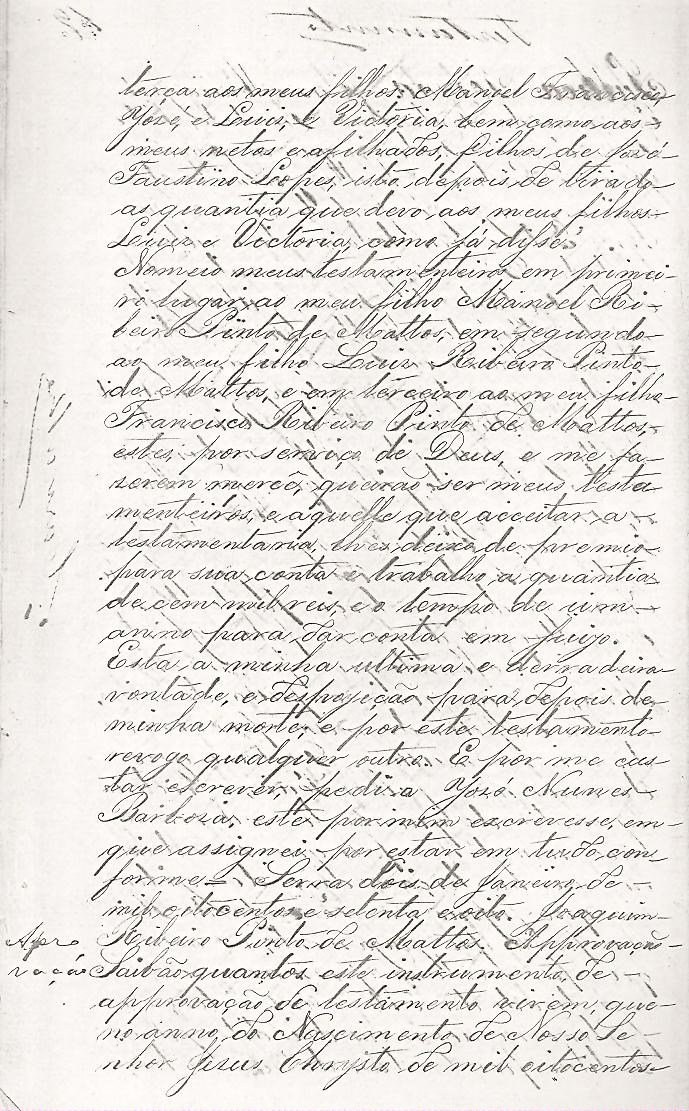 terça aos meus filhos: Manoel Francisco
Yozé, e Luiz, e Victoria, bem como aos
meus netos e afilhados, filhos de José
Faustino Lopes, isto, depois de tirado
as quantia que devo, aos meus filhos
Luiz e Victoria, como já disse.
Nomeio meus testamenteiro em primei-
ro lugar, ao meu filho Manoel Ri-
beiro Pinto de Mattos, em segundo
ao meu filho Luiz Ribeiro Pinto
de Mattos, e em terceiro ao meu filho
Francisco Ribeiro Pinto de Mattos,
estes, por serviço de Deus, e me fa-
zerem mercê, queirão ser meus testa
menteiros, e aquelle que acceitar a
testamentaria, lhes deixo de premio
para sua conta e trabalho a quantia
de cem mil reis, e o tempo de um
anno para dar conta em juizo.
Esta a minha ultima e derradeira
vontade, e despozição para depois de
minha morte e por este testamento
revogo qualquer outro. E por me cus
tar escrever, pedi a Yozé Nunes
Barboza, este por mim escrevesse, em
que assignei por estar em tudo con
forme = Serra dois de Janeiro de
mil oitocentos e setenta e oito. Joaquim
Ribeiro Pinto de Mattos. Approvação
Apro
vação
Saibão quantos este instrumento de
approvação de testamento virem, que
no anno do Nascimento de Nosso Se-
nhor Jesus Christo de mil oitocentos